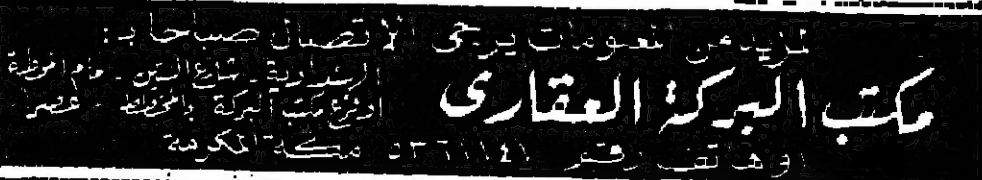 لمزيد من المعلومات يرجى الاتصال صباحا بـ:
مكتب البركة العقاري
الرشدارية - شارع الستين - أمام الخرطة
أو فرع مكتب البركة بالمخطط - عصرا
أو هاتف رقم ٥٣٦١١٤١ مكة المكرمة